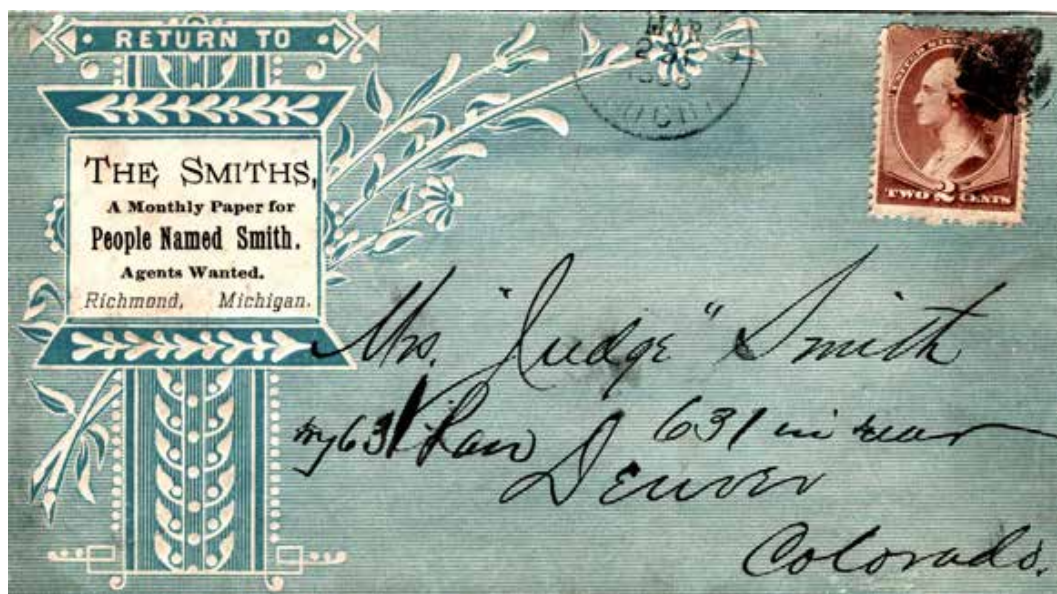 RETURN TO
THE SMITHS,
A Monthly Paper for
People Named Smith.
Agents Wanted.
Richmond, Michigan.
MAR
UNITED STATES
TWO 2 CENTS
Mrs. "Judge" Smith
631 in rear
Denver
Colorado.